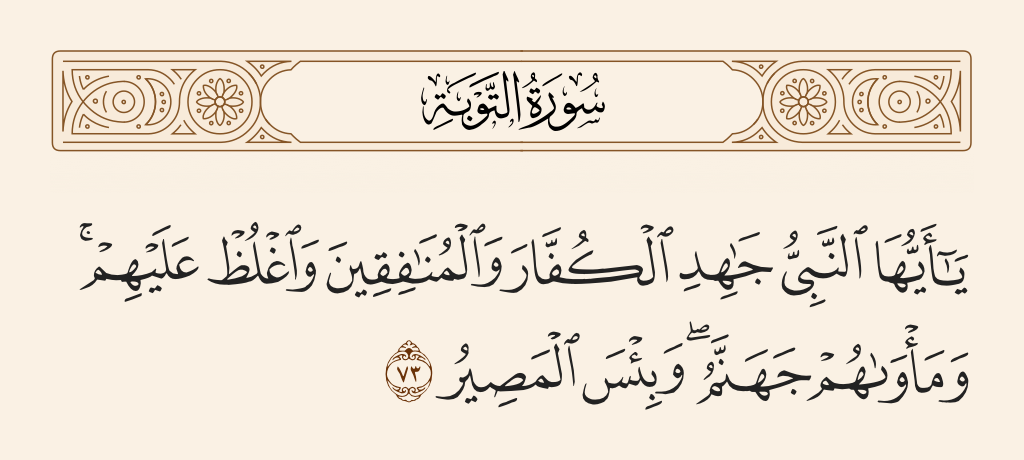 سُورَةُ التَّوۡبَةِ
يَـٰٓأَيُّهَا ٱلنَّبِيُّ جَـٰهِدِ ٱلۡكُفَّارَ وَٱلۡمُنَـٰفِقِينَ وَٱغۡلُظۡ عَلَيۡهِمۡۚ
وَمَأۡوَىٰهُمۡ جَهَنَّمُۖ وَبِئۡسَ ٱلۡمَصِيرُ ٧٣